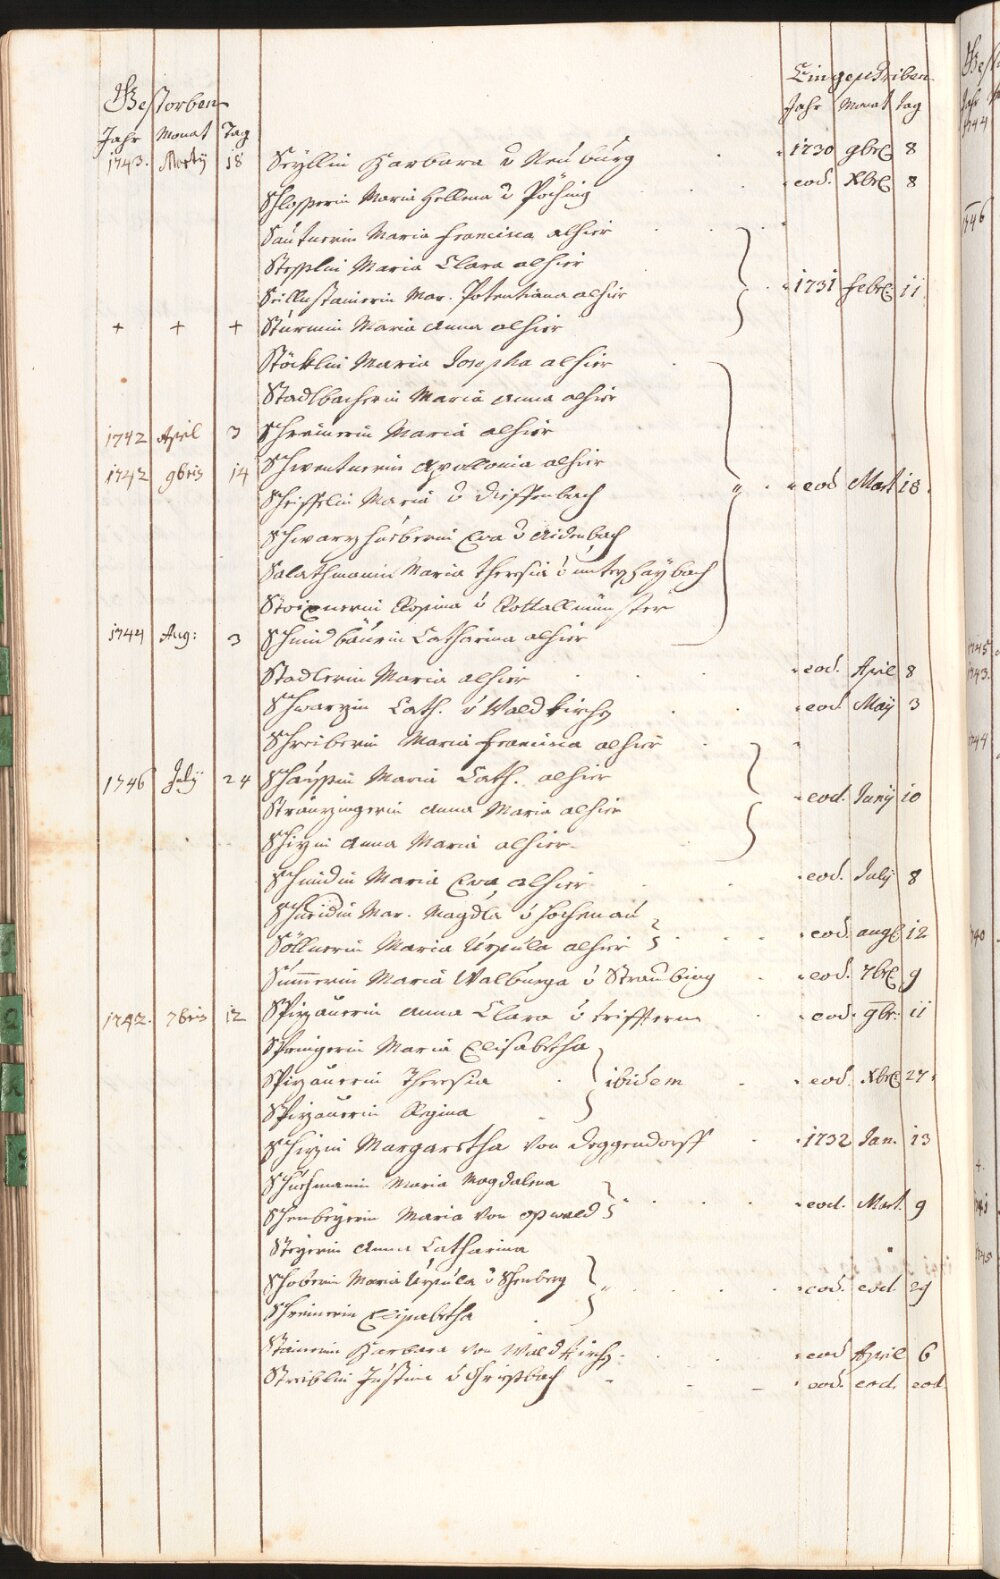 Gestorben Eingeschriben
Jahr Monat Tag Jahr Monat tag
1743. Martÿ 18 Seÿllin Barbara v Neuburg 1730 9bris 8
Schlosserin Maria Hellena v Pöching eod. Xbris 8
Sautnerin Maria Francisca alhier
Stepplin Maria Clara alhier
Seillnstainerin Mar. Potentiana alhier 1731 febr 11
+ + + Sturmin Maria Anna alhier
Stöcklin Maria Josepha alhier
Stadlbacherin Maria Anna alhier
1742 April 3 Schreinerin Maria alhier
1742 9bris 14 Schwentnerin Apollonia alhier
Scheifflin Maria v dieffenbach eod Mart 18.
Schwarzhueberin Eva v Aidenbach
Salathmanin Maria Theresia v unterhaÿbach
Stoixnerin Rosina v Rottallmünster
1744 Aug: 3 Schmidbäurin Catharina alhier
Stadlerin Maria alhier eod. April 8
Schwarzin Cath. v Waldkirch eod Maÿ 3
Schreiberin Maria Francisca alhier
1746 Julÿ 24 Maria Cath. alhier
Stranzingerin Anna Maria alhier eod. Junÿ 10
Schizin Anna Maria alhier
Schmidin Maria Eva alhier eod. Julÿ 8
Schmidin Mar. Magdla v Hochenau
Söllnerin Maria Ursula alhier eod. aug 12
Sum̄erin Maria Walburga v Straubing eod. 7br 9
1742. 7bris 12 Spizauerin Anna Clara v trifftern eod. 9br. 11
Springerin Maria Elisabetha
Spizauerin Theresia ibidem eod. Xbr 27.
Spizauerin Regina
Schizin Margaretha von deggendorff 1732 Jan. 13
Schuehmanin Maria Magdalena
Maria von eod. Mart. 9
Steÿerin Anna Catharina
Schoberin Maria Ursula v Schenberg eod. eod 29
Schreinerin Elisabetha
Stainerin Barbara von Waldkirch eod April 6
Striblin Justina v Griesbach eod. eod. eod